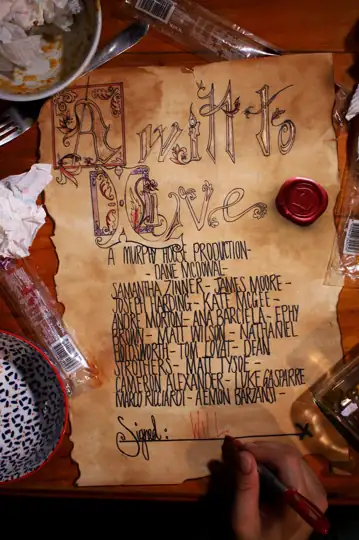 A Will to
Live
A MURPHY HOUSE PRODUCTION-
- DANE MCDONAL-
SAMANTHA ZINNER - JAMES MOORE -
JOSEPH HARDING - KATE MCGEE -
ANDRE MORTON - ANA BARCIELA - EPHY
BROWN - MATT WILSON - NATHANIEL
HOLDSWORTH - TOM LOVAT - DEAN
STROTHERS - MATT TYSOE -
CAMERON ALEXANDER - LUKE GASPARRE
MARCO RICCIARDI - AEMON BARZANJI -
Signed: Will X